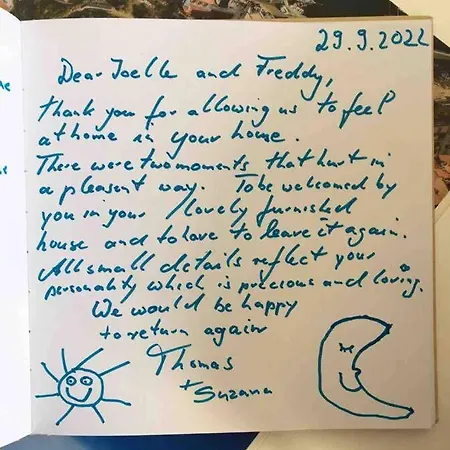 29.9.2022
Dear Joelle and Freddy,
thank you for allowing us to feel
at home in your home.
There were two moments that hurt in
a pleasent way. To be welcomed by
you in your lovely furnished
house and to have to leave it again.
All small details reflect your
personality which is precious and loving.
We would be happy
to return again
Thomas
+
Suzana